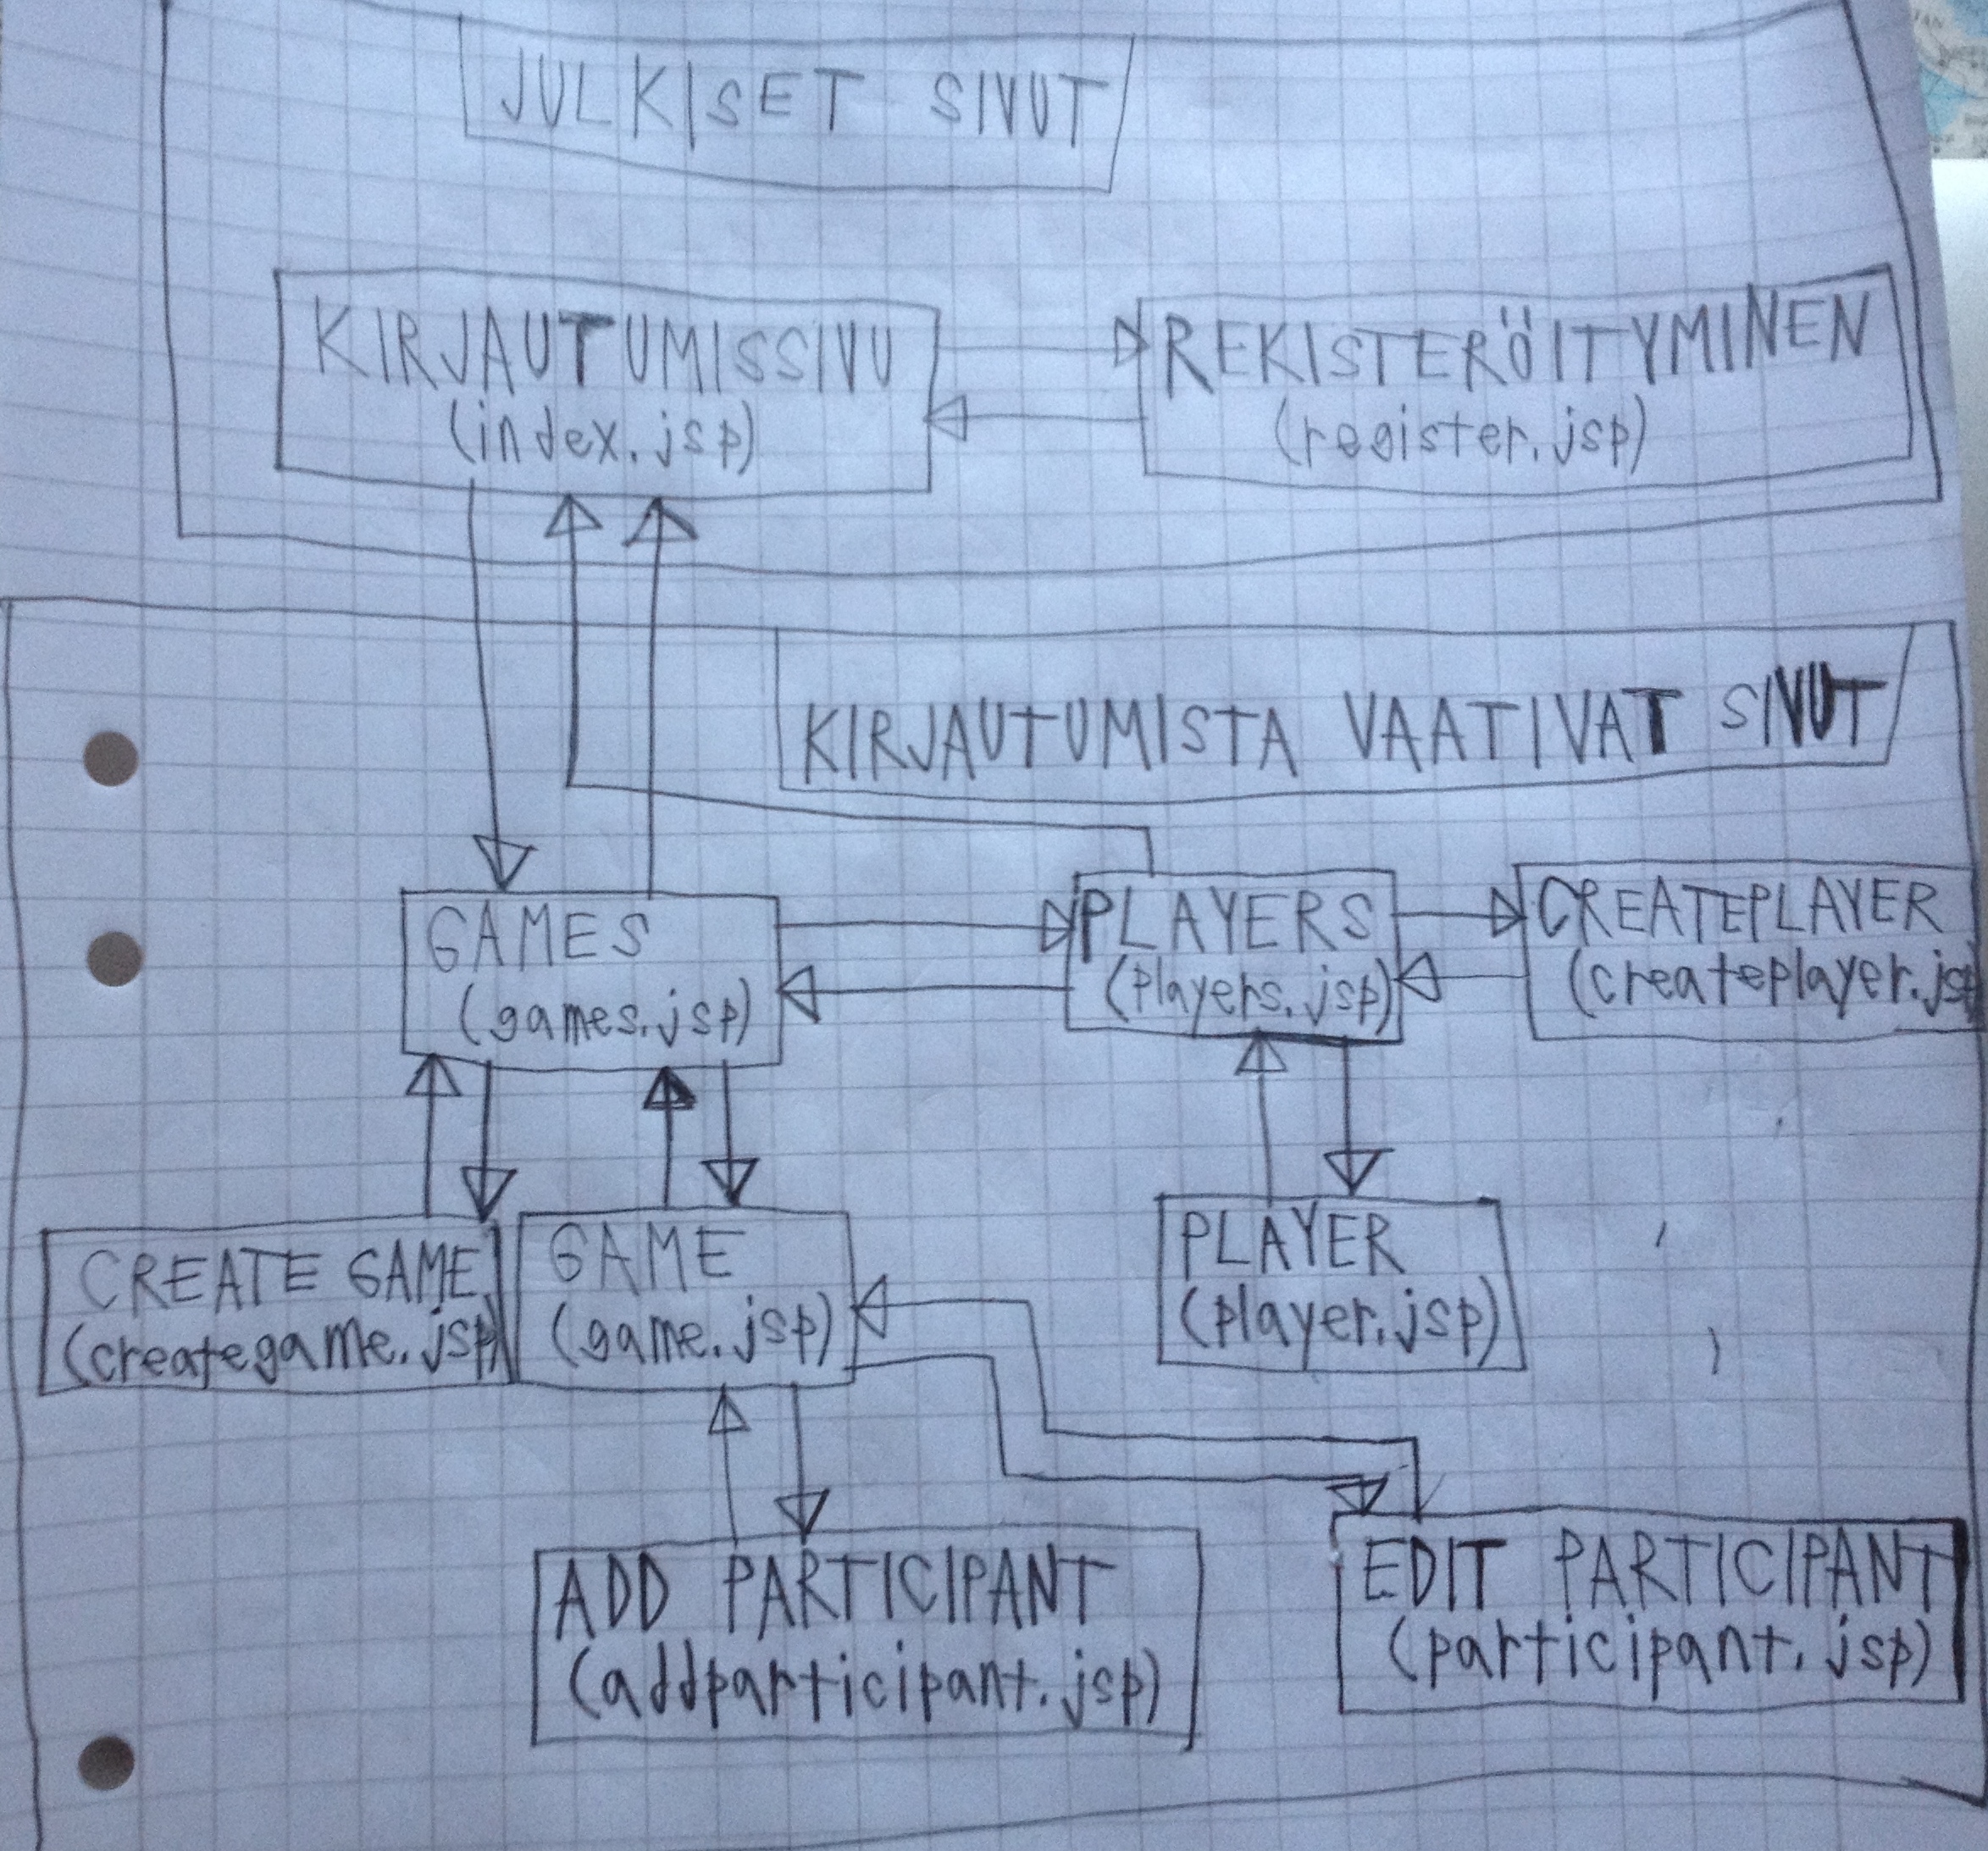 JULKISET SIVUT
KIRJAUTUMISSIVU
(index.jsp)
REKISTERÖITYMINEN
(register.jsp)
KIRJAUTUMISTA VAATIVAT SIVUT
GAMES
(games.jsp)
PLAYERS
(players.jsp)
CREATEPLAYER
(createplayer.jsp
CREATE GAME
(creategame.jsp)
GAME
(game.jsp)
PLAYER
(player.jsp)
ADD PARTICIPANT
(addparticipant.jsp)
EDIT PARTICIPANT
(participant.jsp)